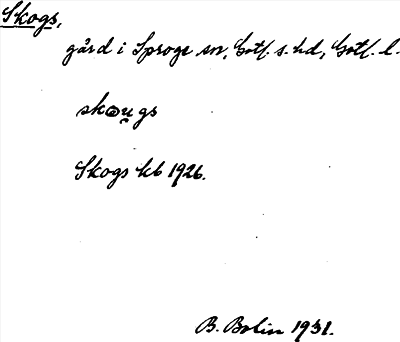 Skogs,
gård i Sproge sn, Gotl. s. hd, Gotl. l.
skꙍu̯gs
Skogs kb 1926.
B. Bolin 1931.